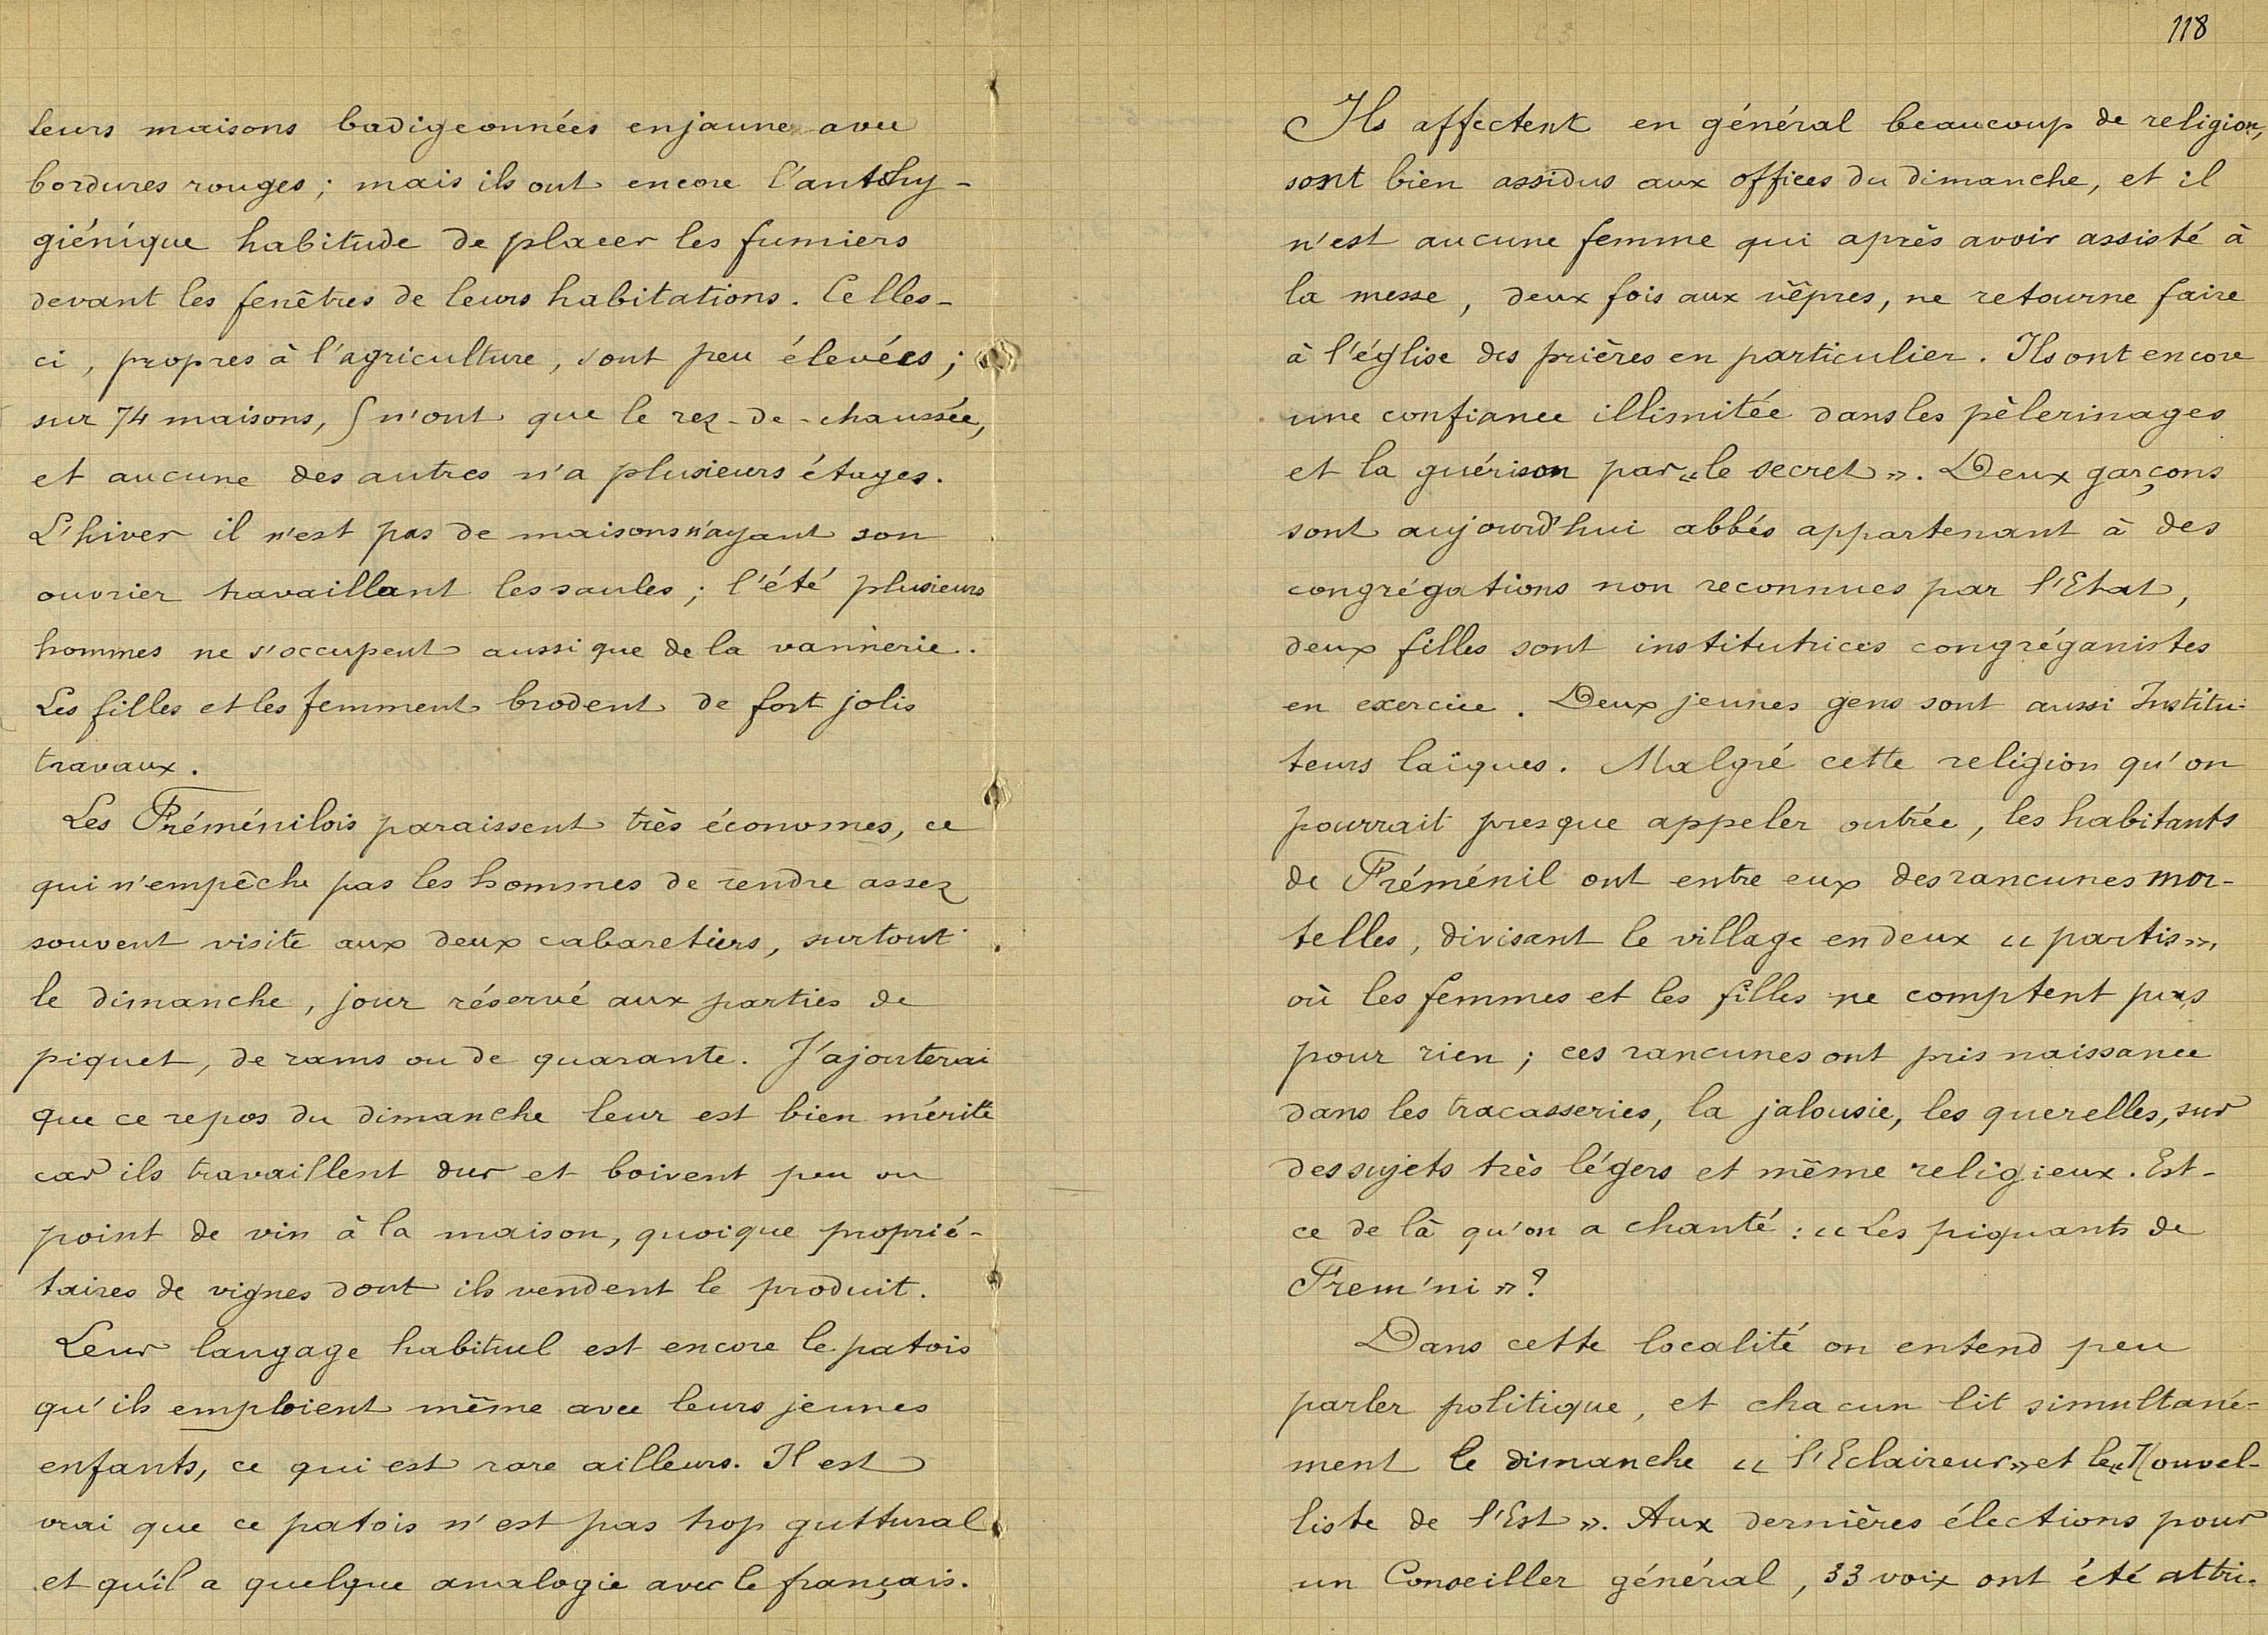 leurs maisons badigeonnées en jaune avec
bordures rouges ; mais ils ont encore l'antihy-
giénique habitude de placer les fumiers
devant les fenêtres de leurs habitations. Celles-
ci, propres à l'agriculture, sont peu élevées ;
sur 74 maisons, 5 n'ont que le rez-de-chaussée,
et aucune des autres n'a plusieurs étages.
L'hiver il n'est pas de maisons n'ayant son
ouvrier travaillant les saules ; l'été plusieurs
hommes ne s'occupent aussi que de la vannerie.
Les filles et les femment brodent de fort jolis
travaux.
Les Fréménilois paraissent très économes, ce
qui n'empêche pas les hommes de rendre assez
souvent visite aux deux cabaretiers, surtout
le dimanche, jour réservé aux parties de
piquet, de rams ou de quarante. J'ajouterai
que ce repos du dimanche leur est bien mérité
car ils travaillent dur et boivent peu ou
point de vin à la maison, quoique proprié-
taires de vignes dont ils vendent le produit.
Leur langage habituel est encore le patois
qu'ils emploient même avec leurs jeunes
enfants, ce qui est rare ailleurs. Il est
vrai que ce patois n'est pas trop guttural
et qu'il a quelque analogie avec le français.
118
Ils affectent en général beaucoup de religion,
sont bien assidus aux offices du dimanche, et il
n'est aucune femme qui après avoir assisté à
la messe, deux fois aux vêpres, ne retourne faire
à l'église des prières en particulier. Ils ont encore
une confiance illimitée dans les pèlerinages
et la guérison par « le secret ». Deux garçons
sont aujourd'hui abbés appartenant à des
congrégations non reconnues par l'Etat,
deux filles sont institutrices congréganistes
en exercice. Deux jeunes gens sont aussi Institu-
teurs laïques. Malgré cette religion qu'on
pourrait presque appeler outrée, les habitants
de Fréménil ont entre eux des rancunes mor-
telles, divisant le village en deux « partis »,
où les femmes et les filles ne comptent pas
pour rien ; ces rancunes ont pris naissance
dans les tracasseries, la jalousie, les querelles, sur
des sujets très légers et même religieux. Est-
ce de là qu'on a chanté : « Les piquants de
Frem'ni » ?
Dans cette localité on entend peu
parler politique, et chacun lit simultané-
ment le dimanche « l'Eclaireur » et le « Nouvel-
liste de l'Est ». Aux dernières élections pour
un Conseiller général, 33 voix ont été attri-